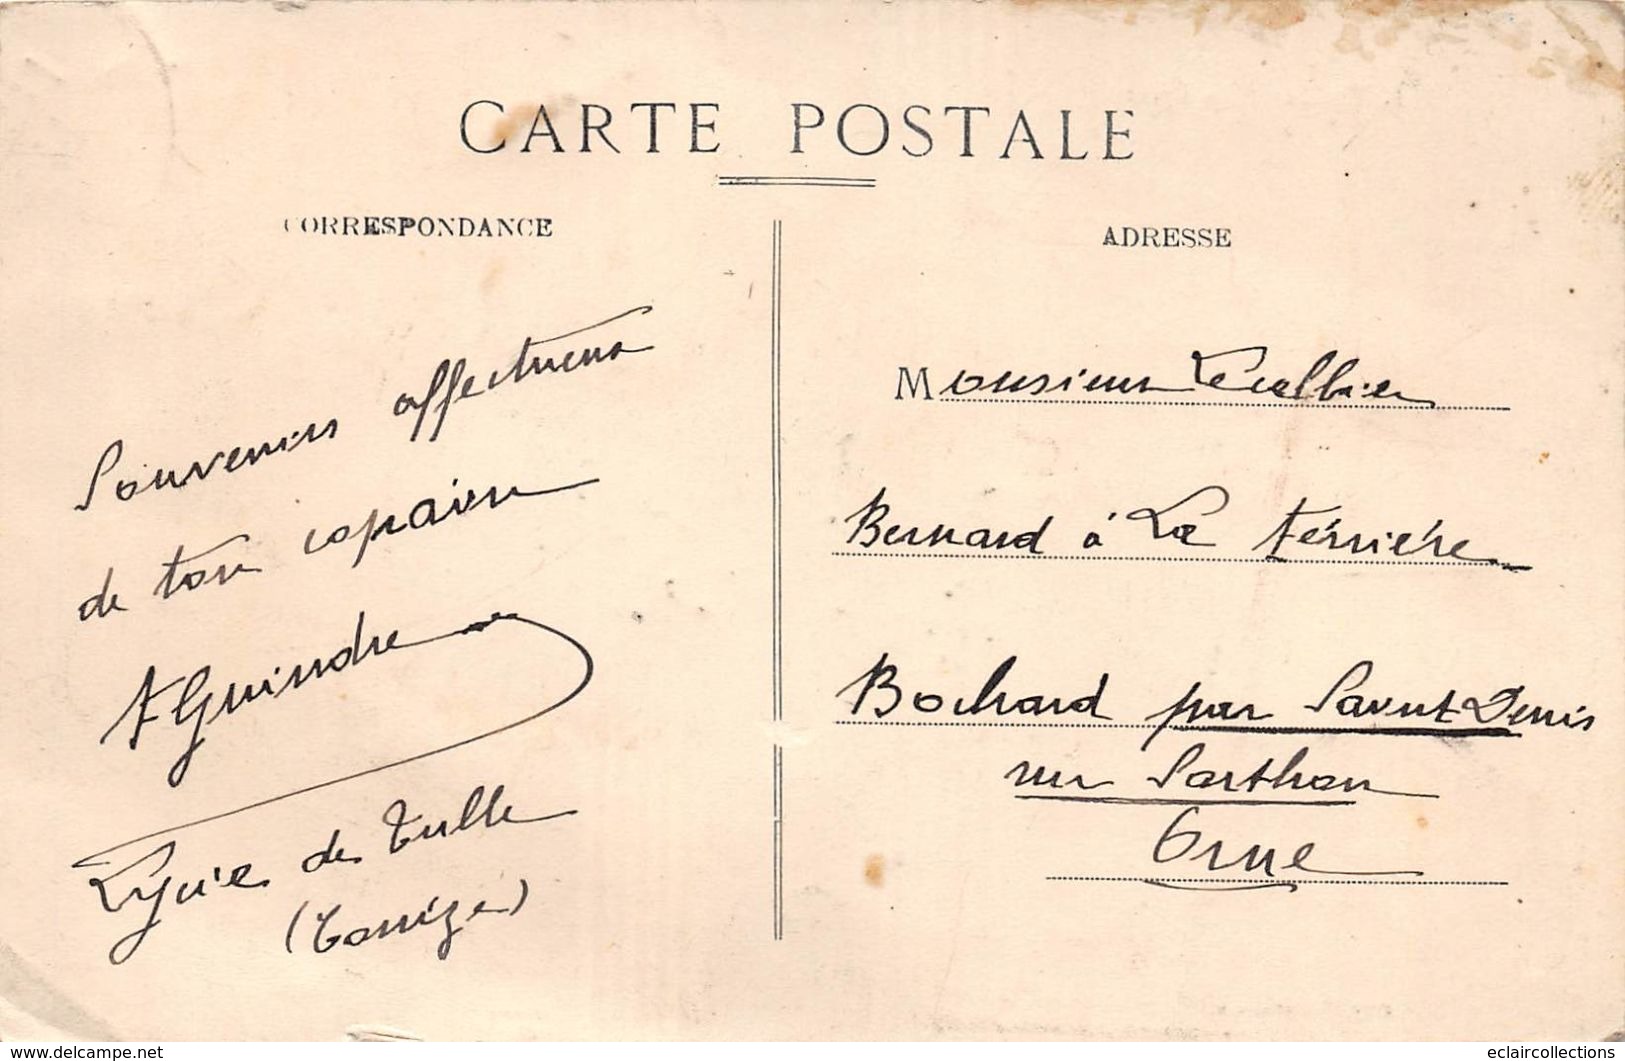 CARTE POSTALE
CORRESPONDANCE
ADRESSE
Souvenirs affectueux
de ton copain
Guindre
Lycée de Tulle
(Corrèze)
Monsieur
Bernard à La Férrière
Bochard par Saint Denis
sur Sarthon
Orne
www.delcampe.net
eclaircollections